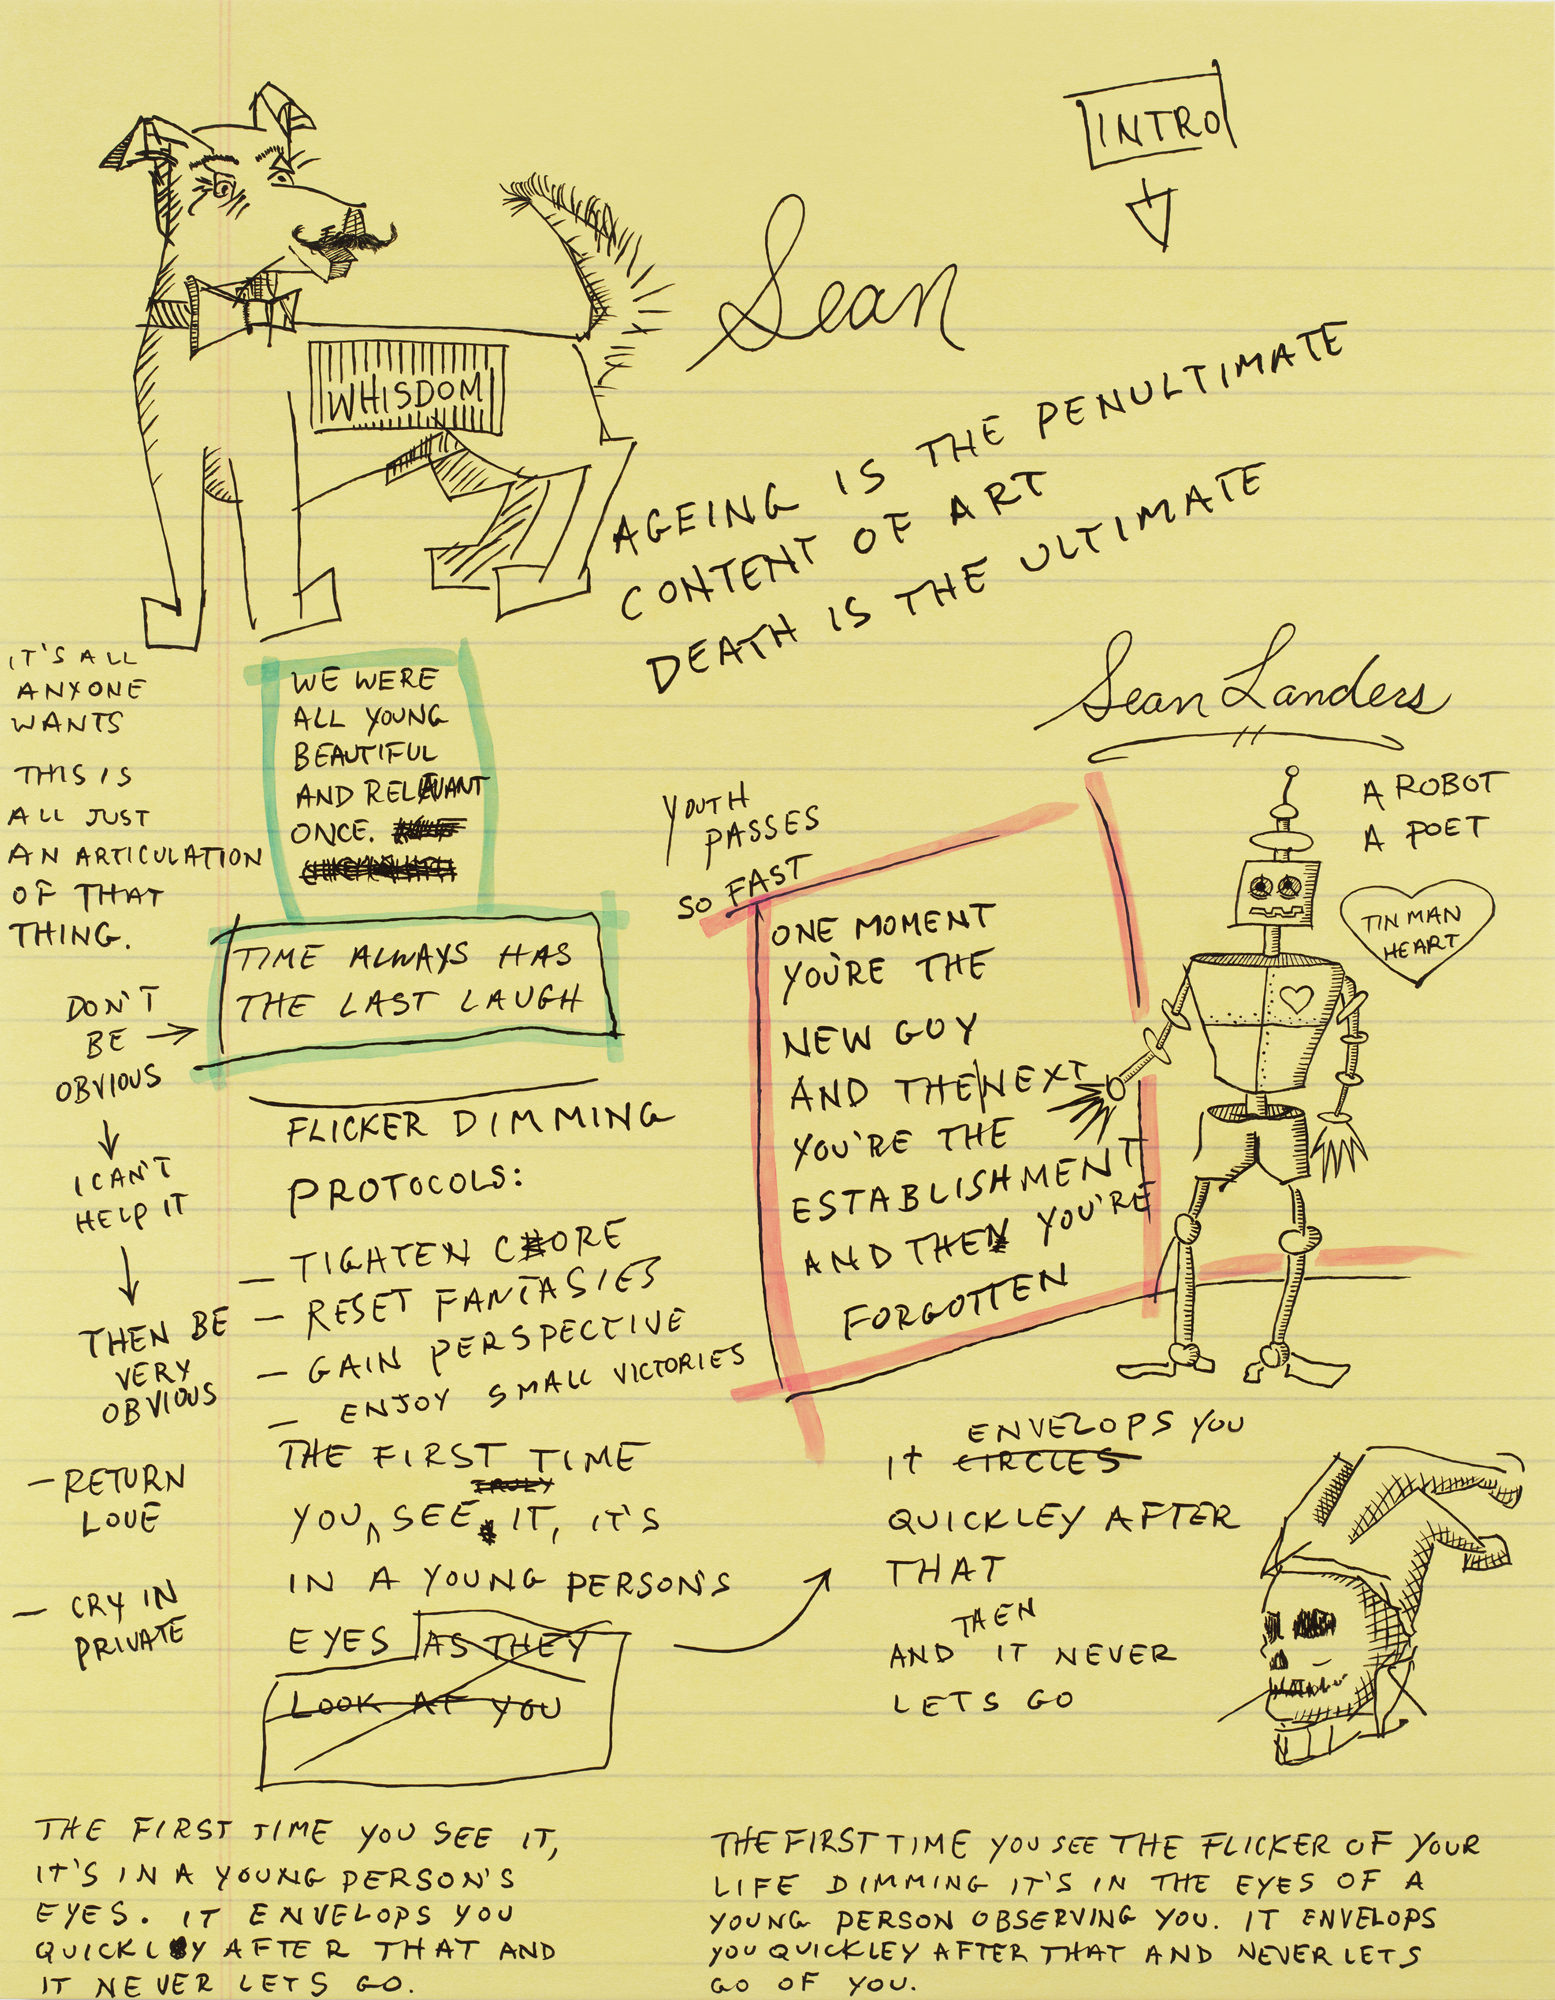 INTRO
Sean
WHISDOM
AGEING IS THE PENULTIMATE
CONTENT OF ART
DEATH IS THE ULTIMATE
IT'S ALL
ANYONE
WANTS
THIS IS
ALL JUST
AN ARTICULATION
OF THAT
THING.
WE WERE
ALL YOUNG
BEAUTIFUL
AND RELAVANT
ONCE.
TIME ALWAYS HAS
THE LAST LAUGH
DON'T
BE
OBVIOUS
I CAN'T
HELP IT
THEN BE
VERY
OBVIOUS
— RETURN
LOVE
— CRY IN
PRIVATE
FLICKER DIMMING
PROTOCOLS:
— TIGHTEN CORE
— RESET FANTASIES
— GAIN PERSPECTIVE
— ENJOY SMALL VICTORIES
Sean Landers
YOUTH
PASSES
SO FAST
ONE MOMENT
YOU'RE THE
NEW GUY
AND THE NEXT
YOU'RE THE
ESTABLISHMENT
AND THEN YOU'RE
FORGOTTEN
A ROBOT
A POET
TIN MAN
HEART
THE FIRST TIME
TRULY
YOU SEE IT, IT'S
IN A YOUNG PERSON'S
EYES AS THEY
LOOK AT YOU
ENVELOPS YOU
IT CIRCLES
QUICKLEY AFTER
THAT
THEN
AND IT NEVER
LETS GO
THE FIRST TIME YOU SEE IT,
IT'S IN A YOUNG PERSON'S
EYES. IT ENVELOPS YOU
QUICKLY AFTER THAT AND
IT NEVER LETS GO.
THE FIRST TIME YOU SEE THE FLICKER OF YOUR
LIFE DIMMING IT'S IN THE EYES OF A
YOUNG PERSON OBSERVING YOU. IT ENVELOPS
YOU QUICKLEY AFTER THAT AND NEVER LETS
GO OF YOU.